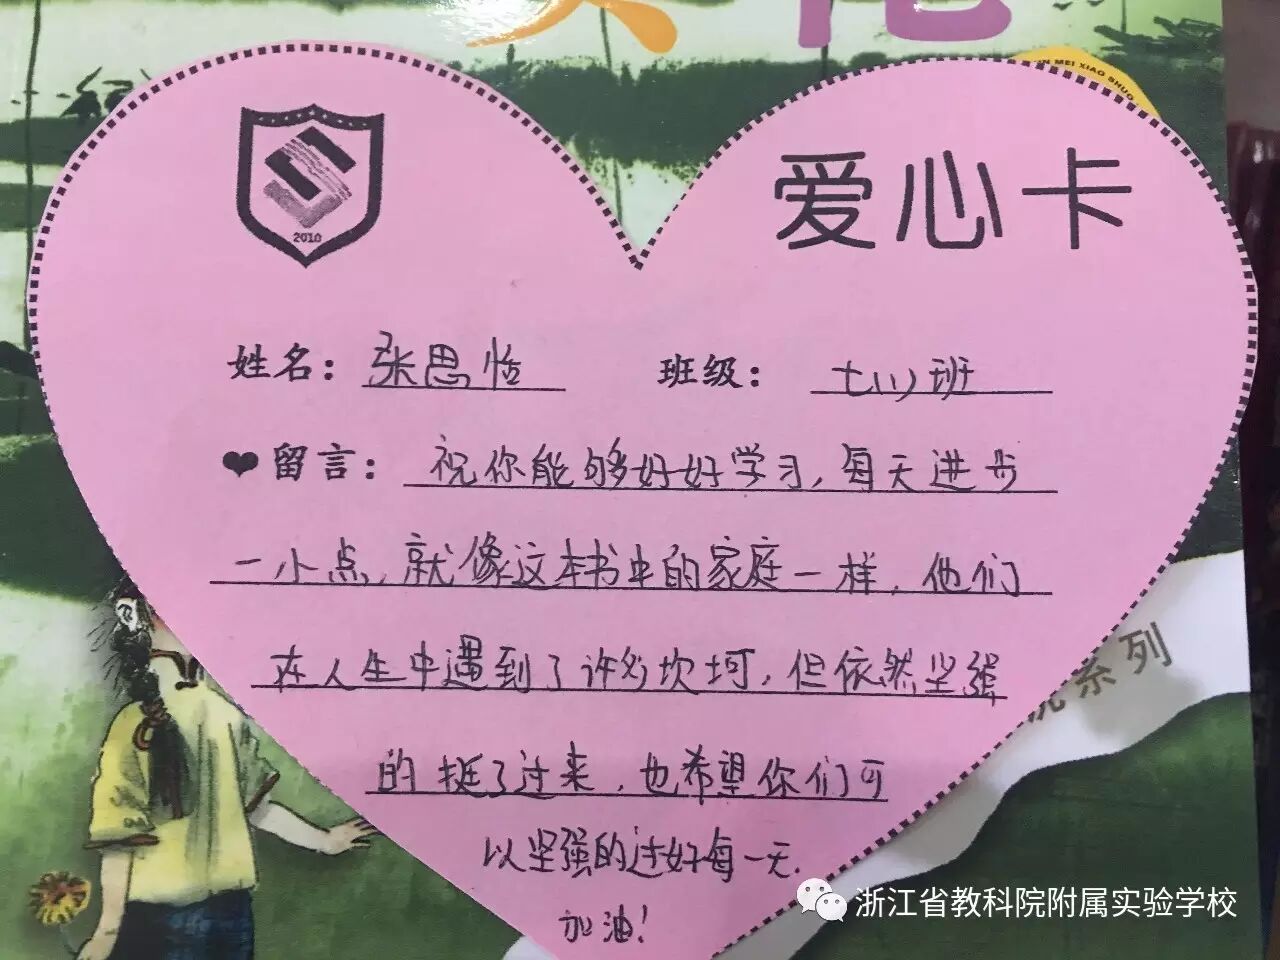 IN MEI XIAO SHUO
爱心卡
2010
姓名：张思恬 班级：七(1)班
❤留言：祝你能够好好学习，每天进步
一小点，就像这本书中的家庭一样，他们
在人生中遇到了许多坎坷，但依然坚强
的挺了过来，也希望你们可
以坚强的过好每一天.
加油！
系列
浙江省教科院附属实验学校